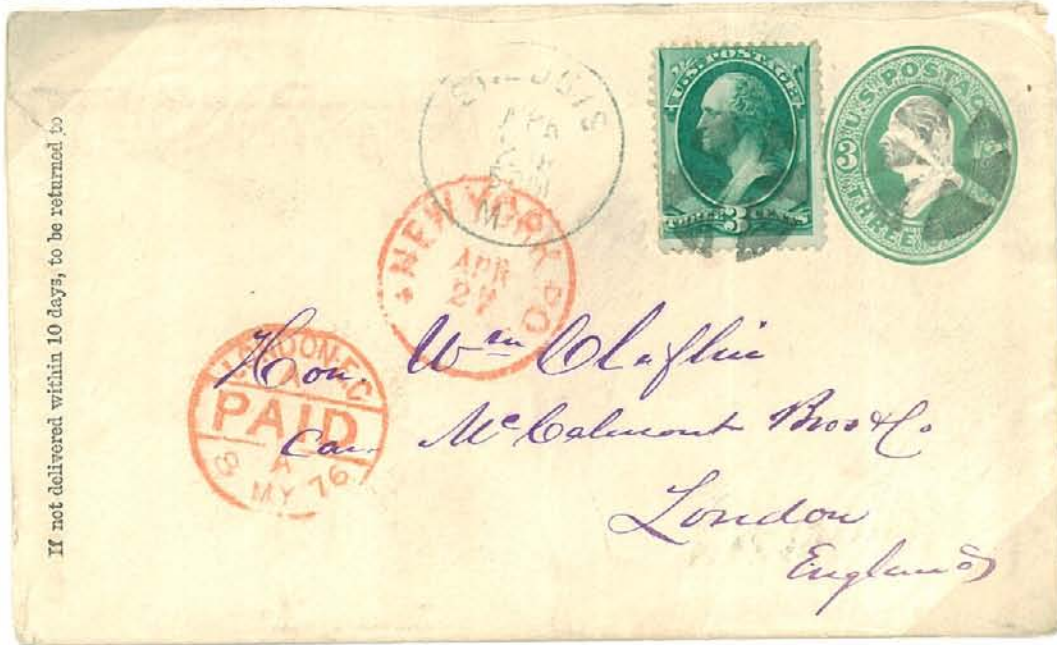 If not delivered within 10 days, to be returned to
ST. LOUIS
APR
MO.
U.S. POSTAGE
THREE 3 CENTS
U.S. POSTAGE
3
THREE
NEW YORK
APR
27
LONDON E.C
PAID
A
8 MY 76
Hon. Wm Claflin
Care McCalmont Bros & Co
London
England